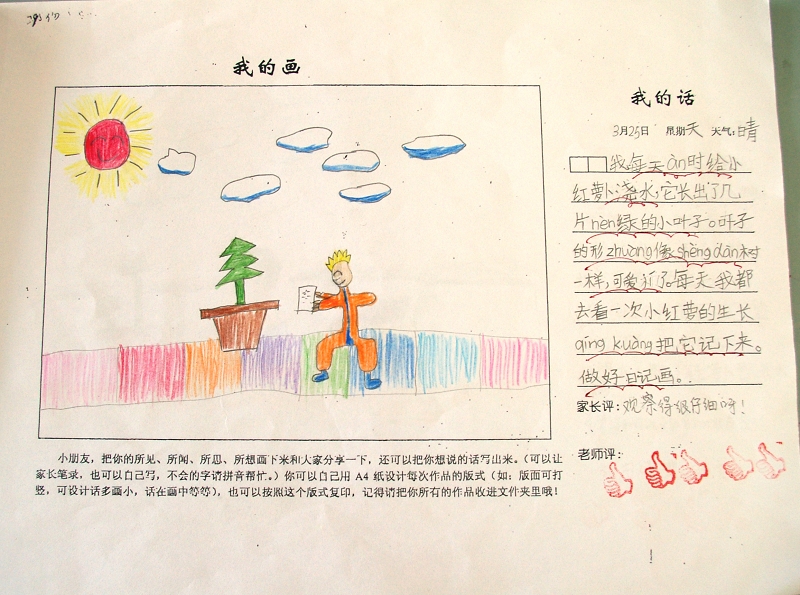 我的画
我的话
3月25日 星期天 天气:晴
我每天àn时给小
红萝卜浇水,它长出了几
片nèn绿的小叶子。叶子
的形zhuàng像shèngdàn树
一样,可爱极了。每天我都
去看一次小红萝的生长
qíng kuàng把它记下来。
做好日记画。
家长评:观察得很仔细呀!
老师评:
小朋友,把你的所见、所闻、所思、所想画下来和大家分享一下,还可以把你想说的话写出来。(可以让
家长笔录,也可以自己写,不会的字请拼音帮忙。)你可以自己用 A4 纸设计每次作品的版式(如:版面可打
竖,可设计话多画小,话在画中等等),也可以按照这个版式复印,记得请把你所有的作品收进文件夹里哦!